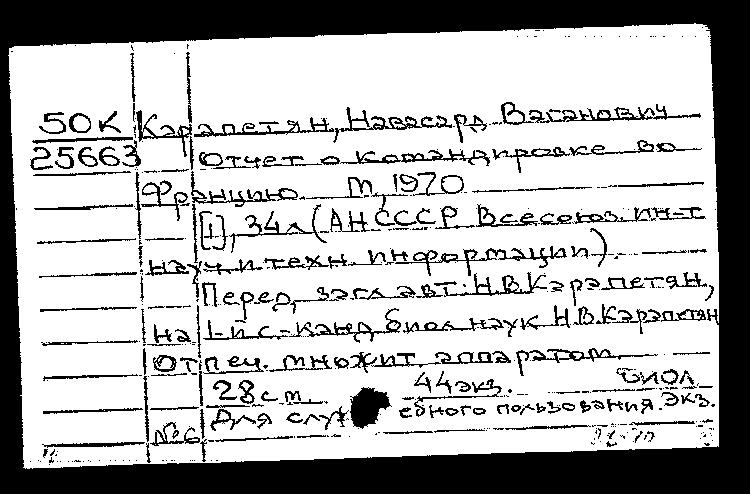 50К Карапетян, Навасард Ваганович
25663 Отчет о командировке во
Францию. М, 1970
[1], 34 л (АН СССР. Всесоюз. ин-т
науч. и техн. информации).
Перед загл авт: Н.В. Карапетян,
на 1-й с.- канд биол наук Н.В. Карапетян
Отпеч. множит. аппаратом.
28 см. 44 экз. биол
Для служебного пользования. Экз.
№6